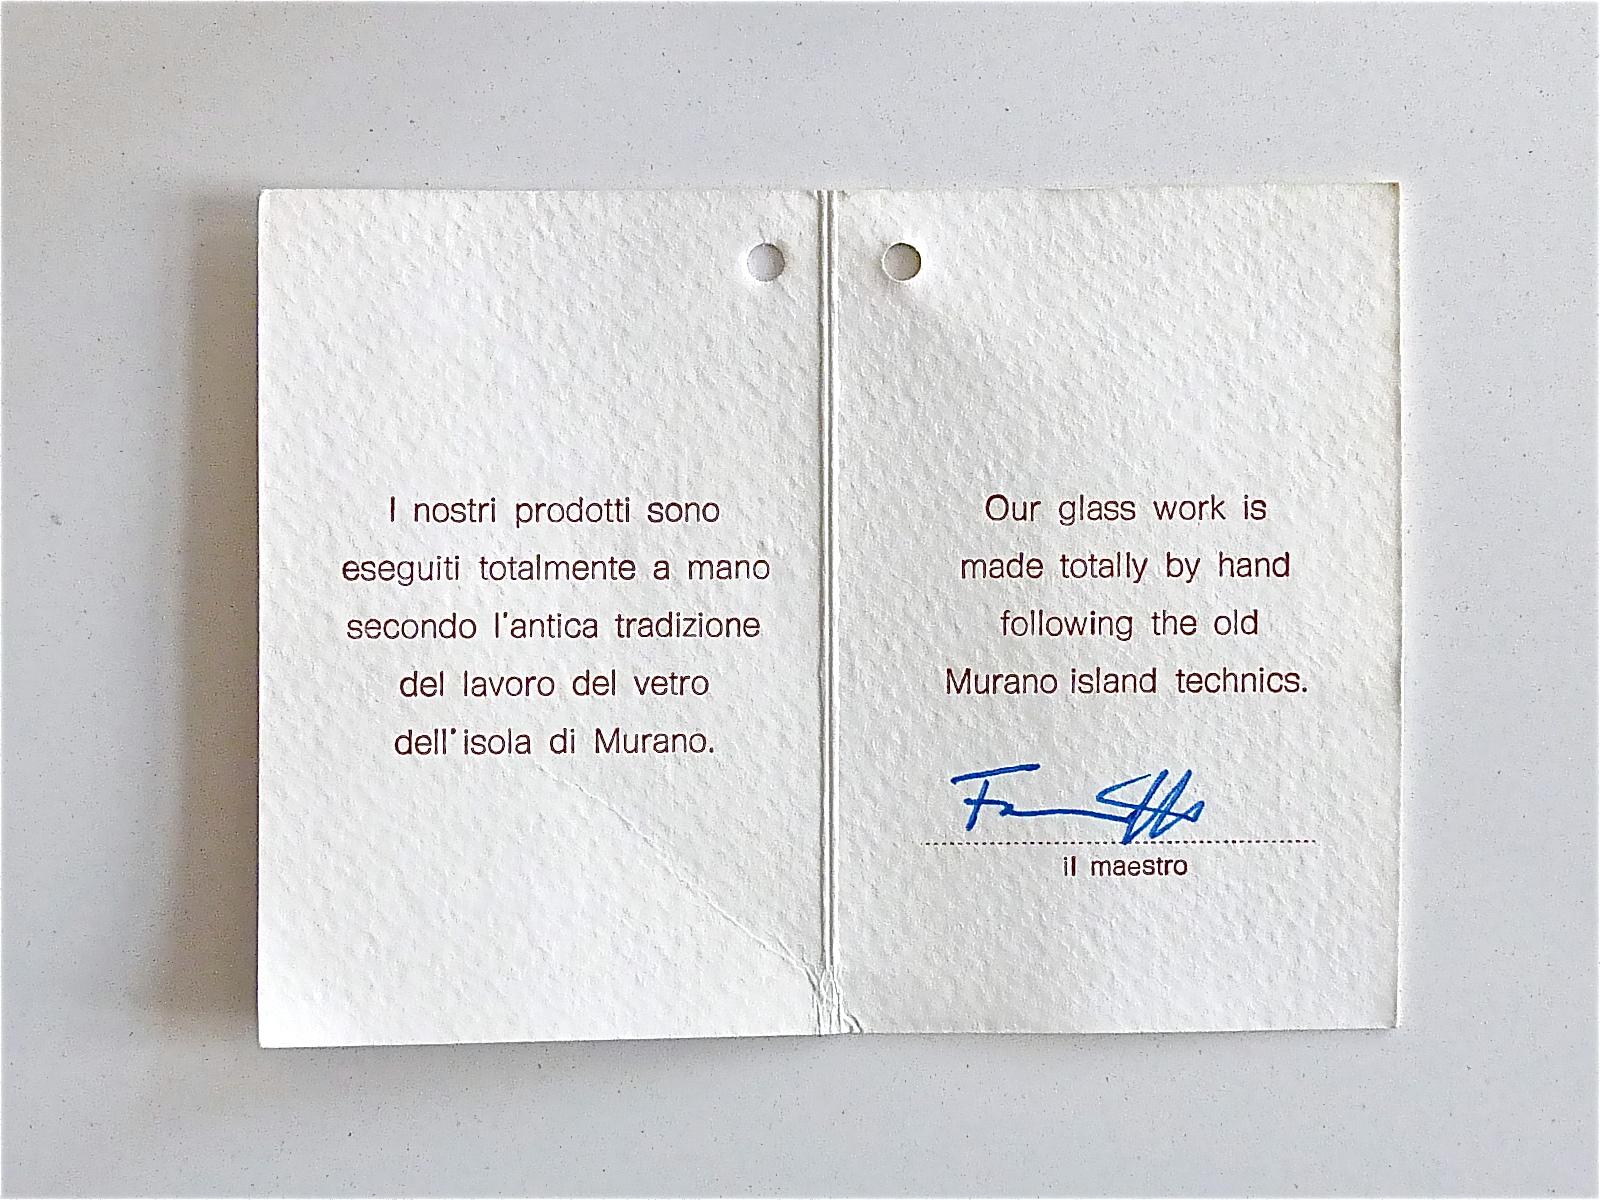 I nostri prodotti sono
eseguiti totalmente a mano
secondo l'antica tradizione
del lavoro del vetro
dell'isola di Murano.
Our glass work is
made totally by hand
following the old
Murano island technics.
il maestro